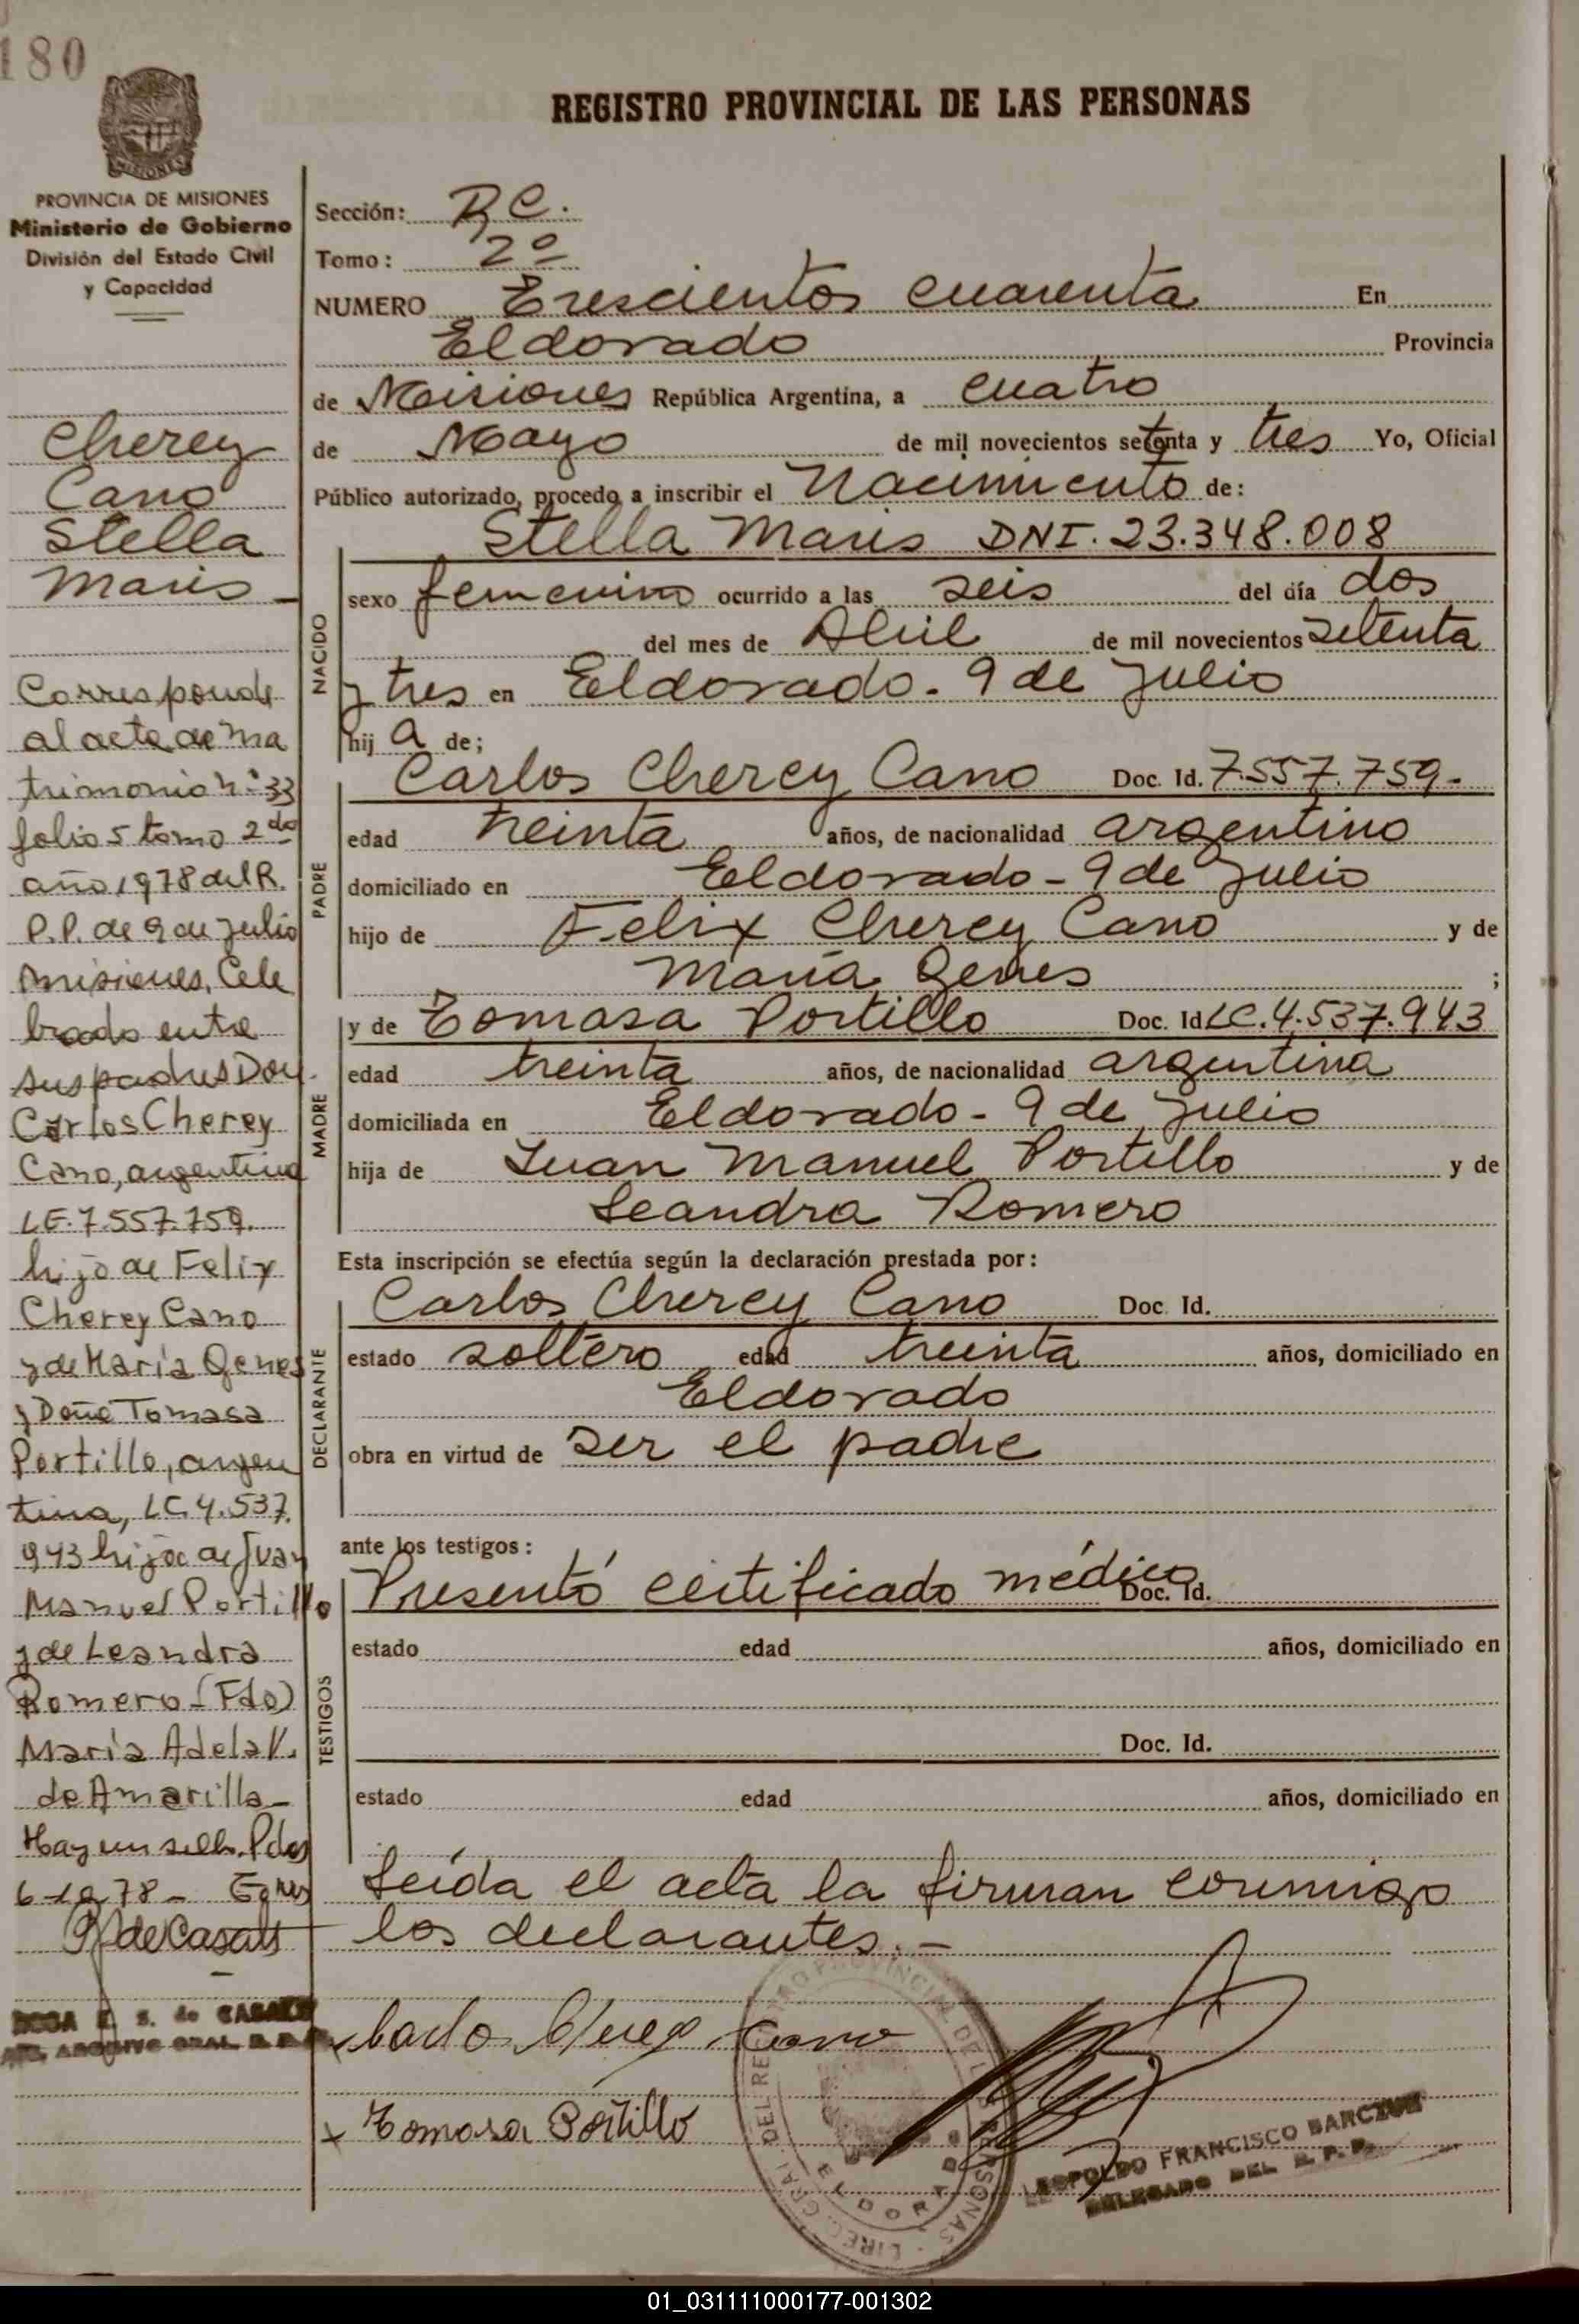 180
MISIONES
PROVINCIA DE MISIONES
Ministerio de Gobierno
División del Estado Civil
y Capacidad
Cherey
Cano
Stella
Maris
Corresponde
al acta de ma
trimonio nº 33
folio 5 tomo 2do
año 1978 del R.
P.P. de 9 de Julio
Misiones. Cele
brado entre
sus padres Don
Carlos Cherey
Cano, argentino
LE. 7.557.759.
hijo de Felix
Cherey Cano
y de María Genes
y Doña Tomasa
Portillo, argen
tina, LC. 4.537.
943 hija de Juan
Manuel Portillo
y de Leandra
Romero - (Fdo)
María Adela V.
de Amarilla -
Hay un sello. Pdas
78 -
de Casals
ROSA S. de CASALS
ARCHIVO GRAL. R. P.
REGISTRO PROVINCIAL DE LAS PERSONAS
Sección: R C.
Tomo: 2º
NUMERO Trescientos cuarenta En
Eldorado Provincia
de Misiones República Argentina, a cuatro
de Mayo de mil novecientos setenta y tres Yo, Oficial
Público autorizado, procedo a inscribir el Nacimiento de:
Stella Maris DNI. 23.348.008
NACIDO
sexo femenino ocurrido a las seis del día dos
del mes de Abril de mil novecientos setenta
y tres en Eldorado - 9 de Julio
hij a de;
PADRE
Carlos Cherey Cano Doc. Id. 7.557.759-
edad treinta años, de nacionalidad argentino
domiciliado en Eldorado - 9 de Julio
hijo de Felix Cherey Cano y de
María Genes ;
MADRE
y de Tomasa Portillo Doc. Id LC. 4.537.943
edad treinta años, de nacionalidad argentina
domiciliada en Eldorado - 9 de Julio
hija de Juan Manuel Portillo y de
Leandra Romero
Esta inscripción se efectúa según la declaración prestada por:
DECLARANTE
Carlos Cherey Cano Doc. Id.
estado soltero edad treinta años, domiciliado en
Eldorado
obra en virtud de ser el padre
ante los testigos:
TESTIGOS
Presentó certificado médico Doc. Id.
estado edad años, domiciliado en
Doc. Id.
estado edad años, domiciliado en
Leída el acta la firman conmigo
los declarantes. -
x Carlos Cherey Cano
x Tomasa Portillo
DIREC. GRAL. DEL REGISTRO PROVINCIAL DE LAS PERSONAS
ELDORADO
LEOPOLDO FRANCISCO BARCZUK
DELEGADO DEL R. P. P.
01_031111000177-001302